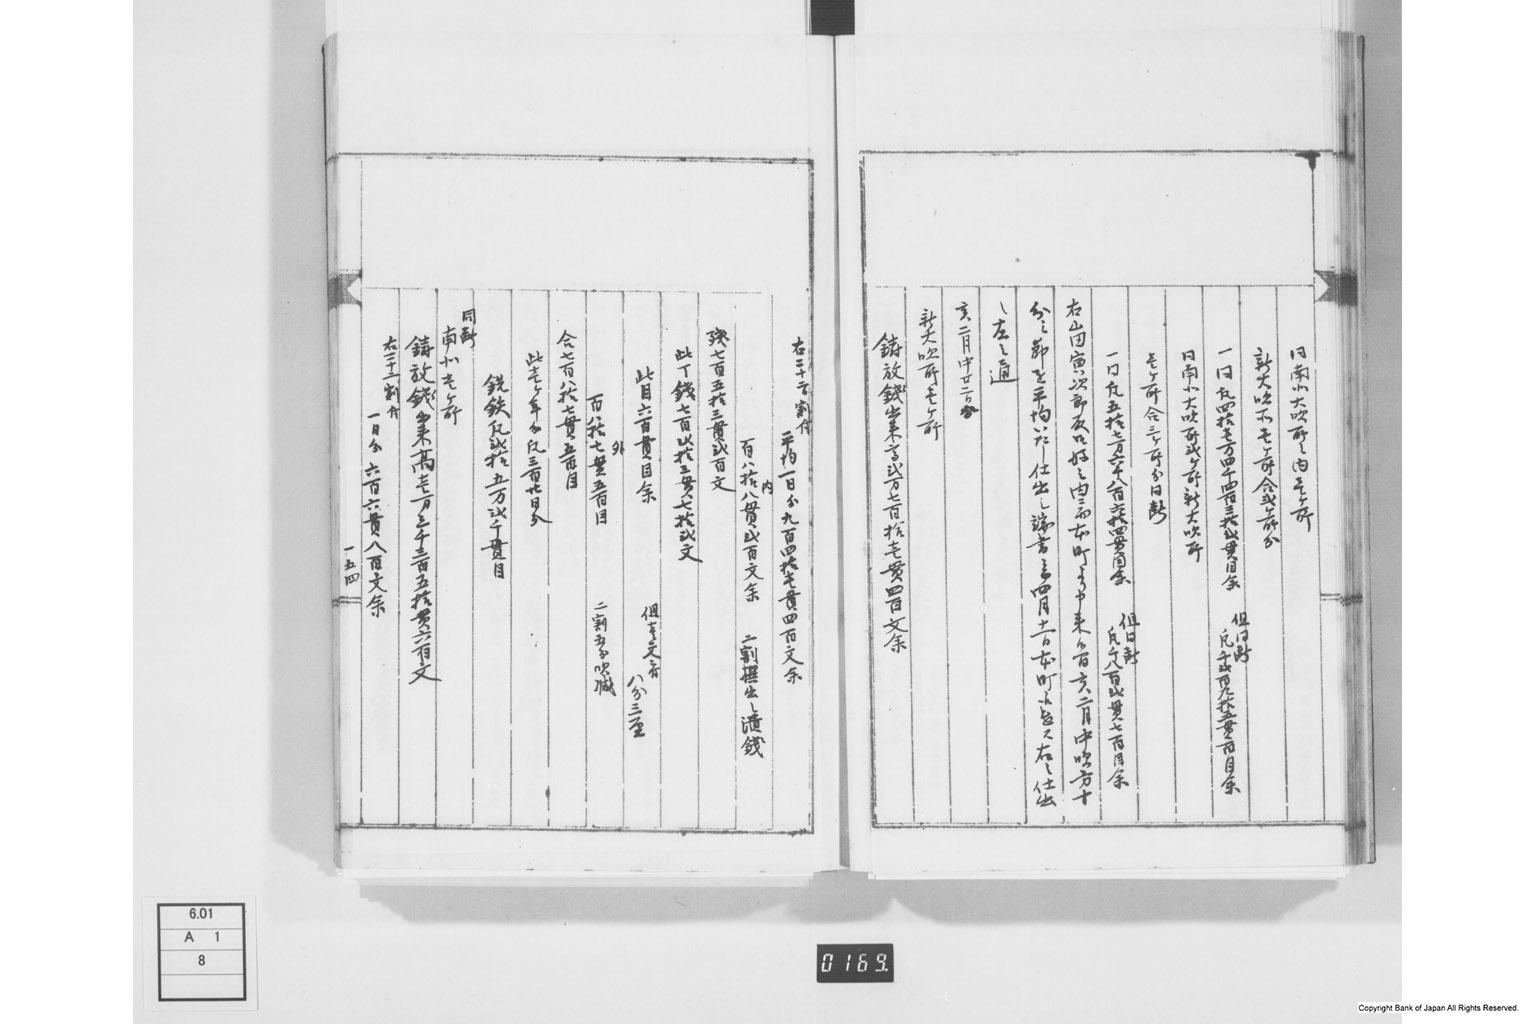 同南北大吹所之内壱ヶ所
新大吹所壱ヶ所合弐ヶ所分
一同凡四拾壱万四千四百三拾弐貫目余 但同断 凡千弐百九拾五貫百目余
同南北大吹所弐ヶ所新大吹所
壱ヶ所合三ヶ所分同断
一同凡五拾七万六千八百六拾四貫目余 但同断 凡千八百弐貫七百目余
右山田寅次郎
平均いたし仕出し端書
し左之通
亥二月中廿二日分
新大吹所壱ヶ所
鋳放銭出来高弐万七百拾壱貫四百文余
右二十二割付
平均一日分九百四拾壱貫四百文余
内
百八拾八貫弐百文余 二割撰出し潰銭
残七百五拾三貫弐百文
此丁銭七百弐拾三貫七拾弐文
此目六百貫目余 但壱文ニ付 八分三厘
外
百八拾七貫五百目 二割五分吹減
合七百八拾七貫五百目
此壱ヶ年分凡三百廿日分
銑鉄凡弐拾五万弐千貫目
同断
南北壱ヶ所
鋳放銭出来高壱万三千三百五拾貫六百文
右二十二割付
一日分 六百六貫八百文余
一五四
6.01
A 1
8
0169.
Copyright Bank of Japan All Rights Reserved.